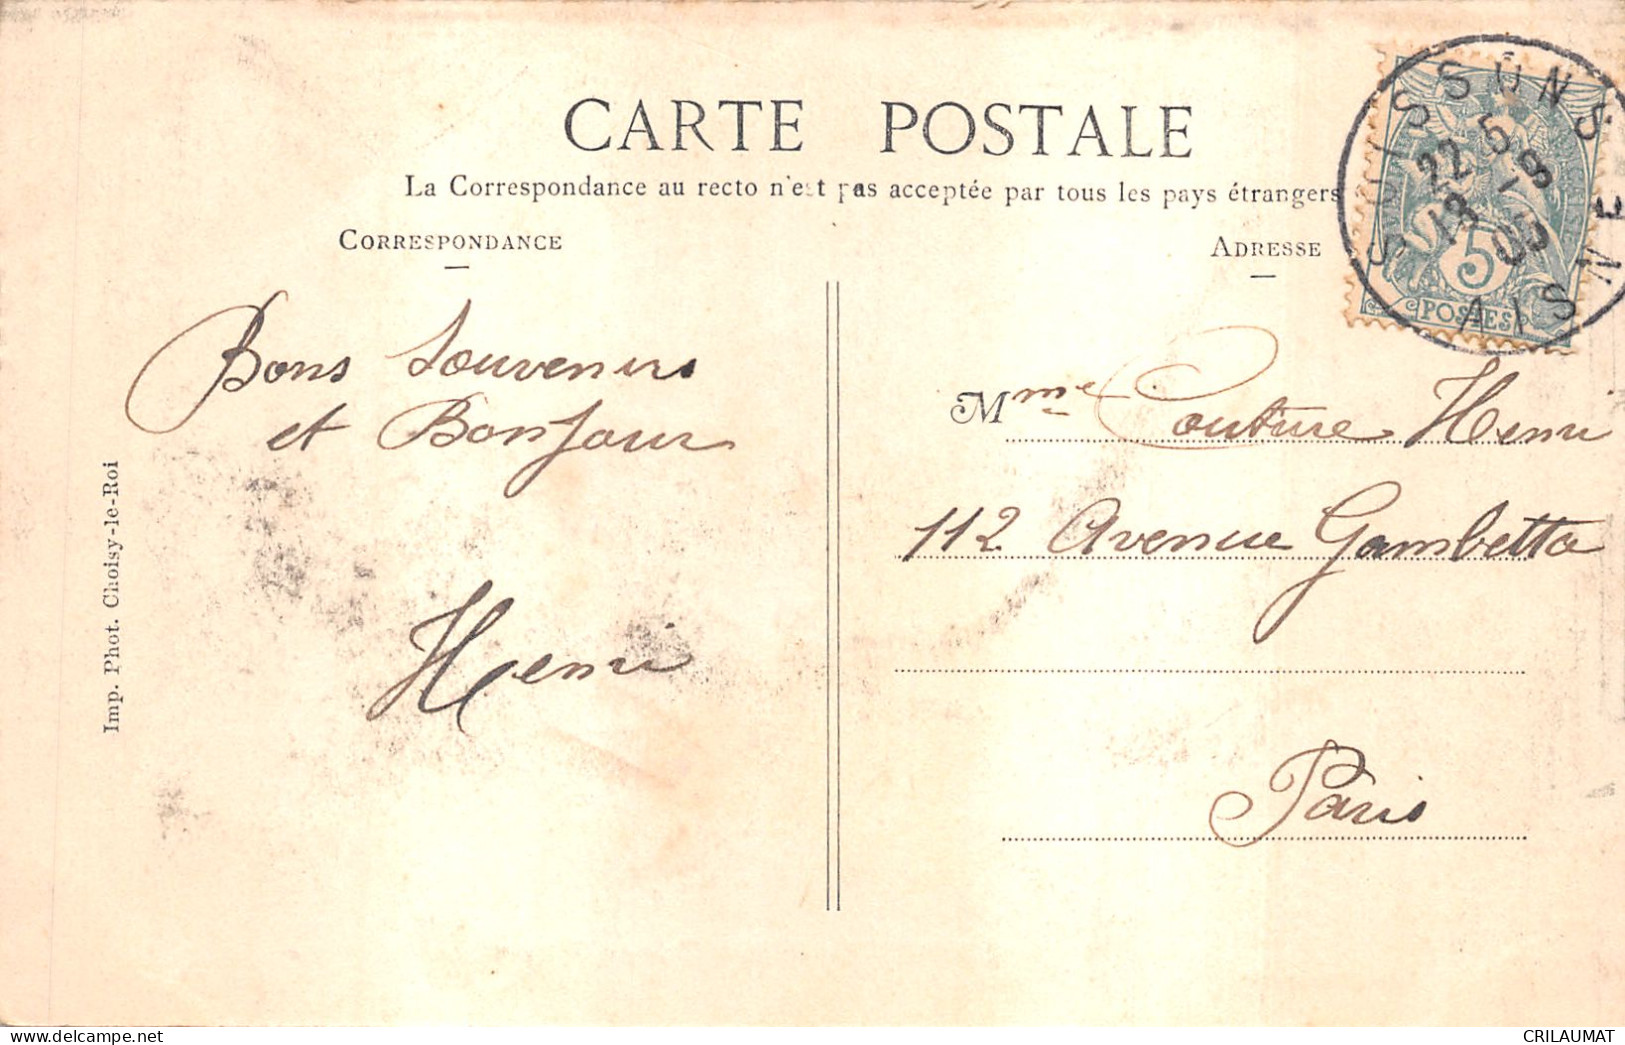 CARTE POSTALE
La Correspondance au recto n'est pas acceptée par tous les pays étrangers
CORRESPONDANCE
Bons Souvenirs
et Bonjour
Henri
Imp. Phot. Choisy-le-Roi
ADRESSE
Mme Couture Henri
112 Avenue Gambetta
Paris
SOISSONS
AISNE
22 5
-9
05
5
POSTES
CRILAUMAT